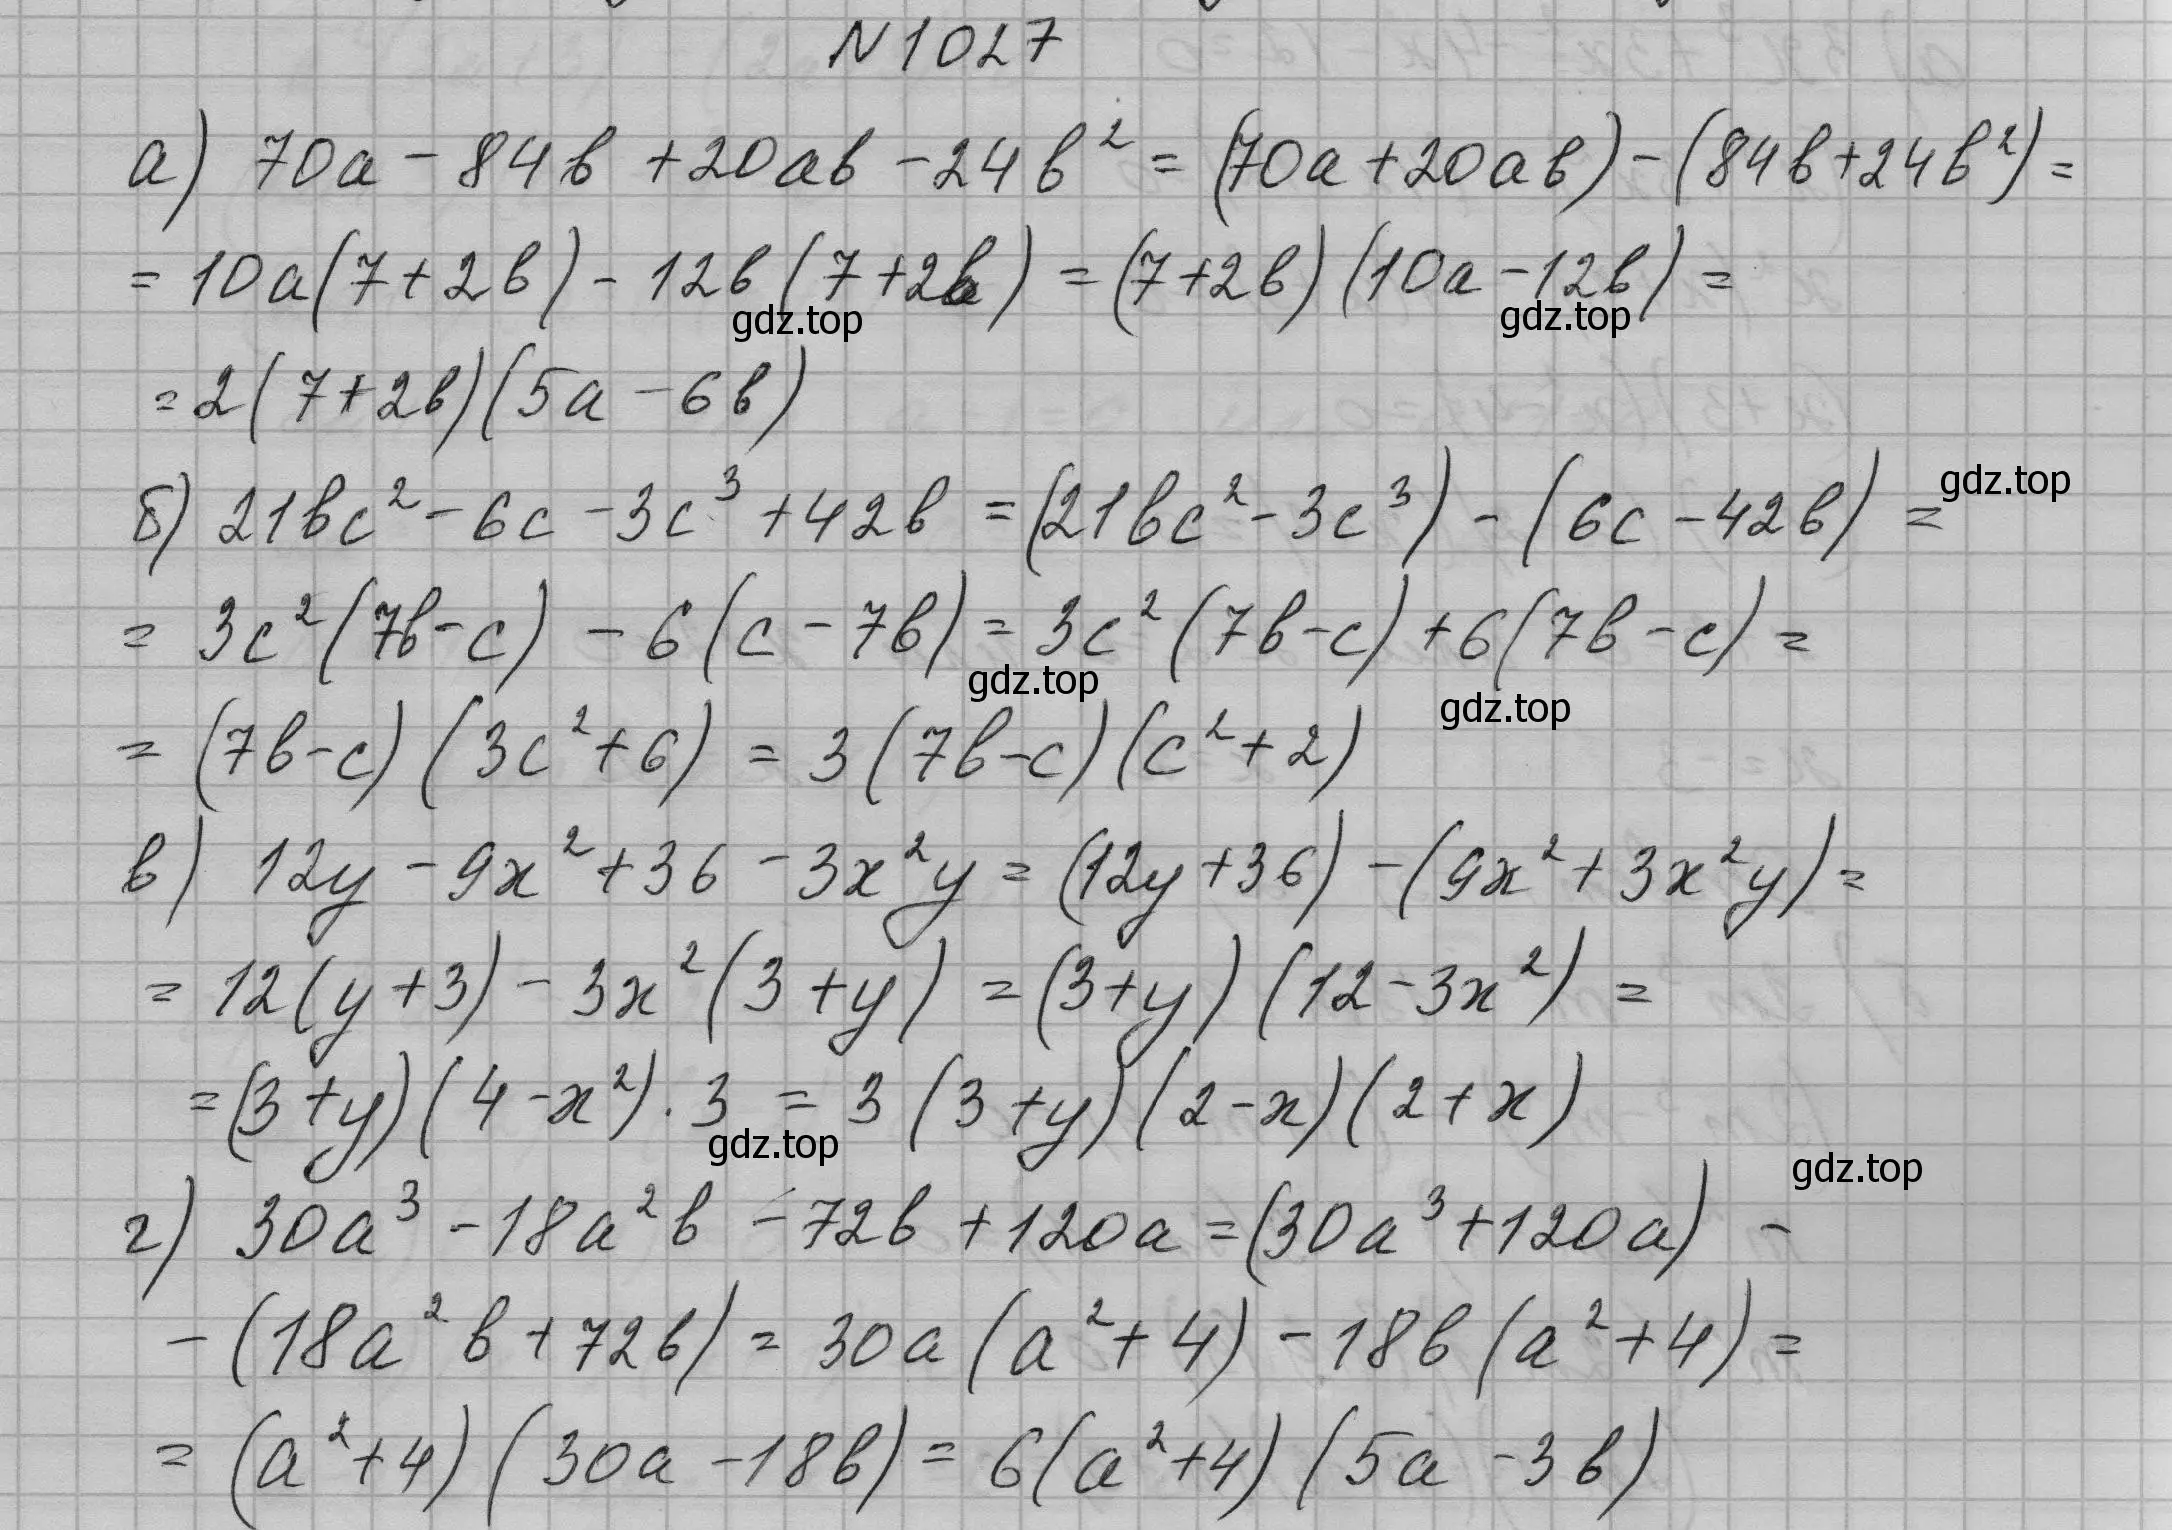 N 1027
а) 70a - 84b + 20ab - 24b² = (70a + 20ab) - (84b + 24b²) =
= 10a(7 + 2b) - 12b(7 + 2b) = (7 + 2b)(10a - 12b) =
gdz.top
gdz.top
= 2(7 + 2b)(5a - 6b)
б) 21bc² - 6c - 3c³ + 42b = (21bc² - 3c³) - (6c - 42b) =
gdz.top
= 3c²(7b - c) - 6(c - 7b) = 3c²(7b - c) + 6(7b - c) =
gdz.top
gdz.top
= (7b - c)(3c² + 6) = 3(7b - c)(c² + 2)
в) 12y - 9x² + 36 - 3x²y = (12y + 36) - (9x² + 3x²y) =
= 12(y + 3) - 3x²(3 + y) = (3 + y)(12 - 3x²) =
= (3 + y)(4 - x²) · 3 = 3(3 + y)(2 - x)(2 + x)
gdz.top
gdz.top
г) 30a³ - 18a²b - 72b + 120a = (30a³ + 120a) -
- (18a²b + 72b) = 30a(a² + 4) - 18b(a² + 4) =
= (a² + 4)(30a - 18b) = 6(a² + 4)(5a - 3b)